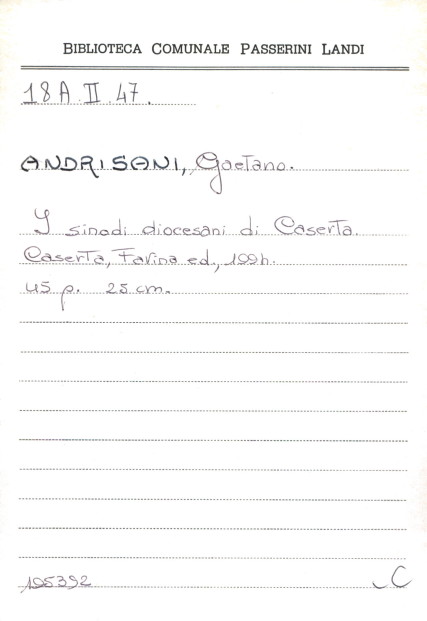 BIBLIOTECA COMUNALE PASSERINI LANDI
18A.II.47.
ANDRISANI, Gaetano.
I sinodi diocesani di Caserta.
Caserta, Farina ed., 1994.
45 p. 25 cm.
105392 C